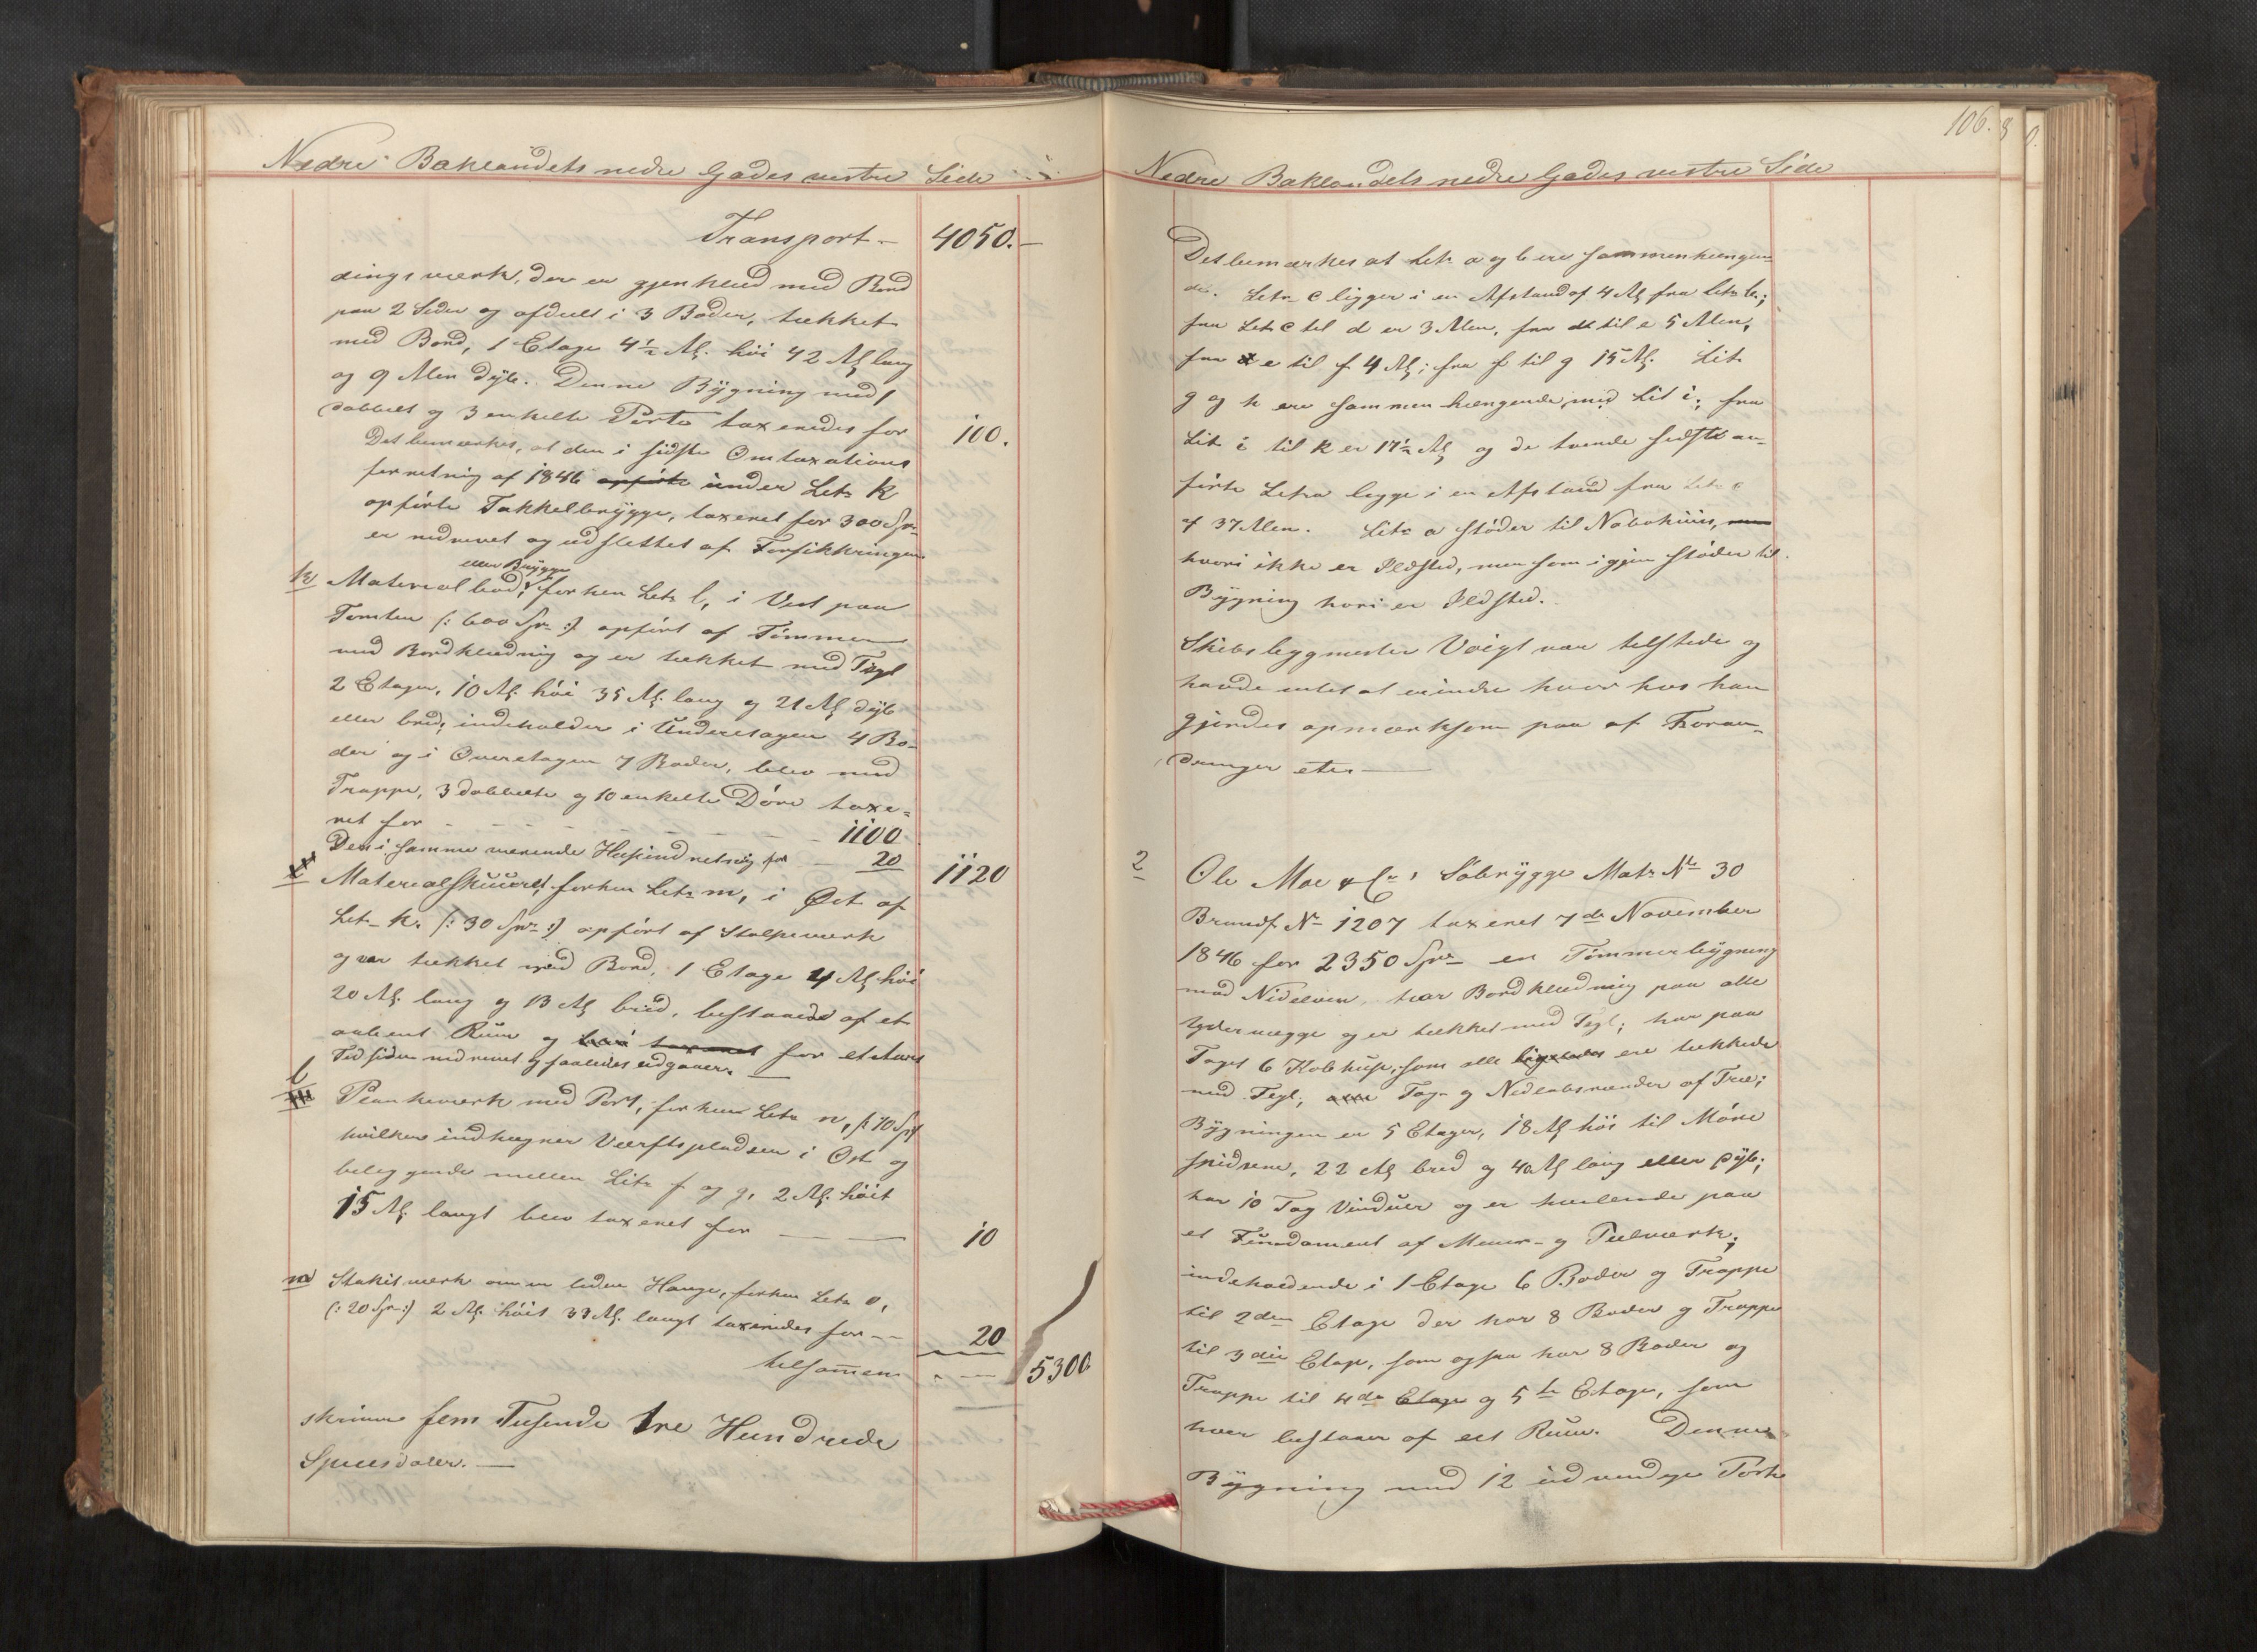 Nedre Baklandets nedre Gades vestre Side
Transport 4050.
dingsværk, der er gjenklæd med Bord
paa 2 Sider og afdeelt i 3 Boder, tækket
med Bord, 1 Etage 4½ Al. høi 42 Al lang
og 9 Alen dyb. Denne Bygning med 1
dobbelt og 3 enkelte Porte taxeredes for 100.
Det bemærkes, at den i sidste Omtaxations
forretnig af 1846 opførte under Litr k
opførte Takkelbrygge, taxeret for 300 Spr
er nedrevet og udslettet af Forsikkringen
eller Brygge
k Materialbod, forhen Litr l, i Vest paa
Tomten (: 600 Spr :) opført af Tømmer
med Bordklædnig og er tækket med Tegl
2 Etager, 10 Al høi 35 Al. lang og 21 Al dyb
eller bred, indeholder i Underetagen 4 Bo-
der og i Overetagen 7 Boder, blev med
Trappe, 3 dobbelte og 10 enkelte Døre taxe-
ret for 1100
Den i samme værende Heisindretnig for 20 1120
Materialskuuret, forhen Litr m, i Øst af
Litr k. (: 30 Spr :) opført af Stolpeværk
og var tækket med Bord, 1 Etage 4 Al høi
20 Al. lang og 13 Al bred, bestaaende af et
aabent Rum og blev taxeret for et
Tid siden nedrevet og saaledes udgaaer.
l Plankeværk med Port, forhen Litr n, (: 10 Sp :)
hvilken indhegner Værftspladsen i Øst og
beliggende mellem Litr f og g, 2 Al. høit
15 Al. langt blev taxeret for 10
m Stakitværk om en liden Hauge, forhen Litr o,
(: 20 Spr :) 2 Al. høit 33 Al. langt taxeredes for 20
tilsammen 5300
skriver fem Tusende tre Hundrede
Speciesdaler.
106.
Nedre Baklandets nedre Gades vestre Side
Det bemærkes at Litr a og b ere sammenhængen-
de. Litr c ligger i en Afstand af 4 Al fra Litr b;
fra Litr c til d er 3 Alen, fra d til e 5 Alen,
fra e til f 4 Al; fra f til g 15 Al. Litr
g og h ere sammenhængende med Lit i; fra
Litr i til k er 17½ Al og de tvende sidst an-
førte Litra ligge i en Afstand fra Litr
af 37 Alen. Litr a støder til Nabohuus,
hvori ikke er Ildsted, men som igjen støder til
Bygning hvori er Ildsted.
Skibsbygmester Voigt var tilstede og
havde intet at erindre hvor hos han
gjordes opmærksom paa af Foran-
dringer etc
2 Ole Moe & Co's Søbrygge Matr No 30
Brandf No 1207 taxeret 7de November
1846 for 2350 Spr en Tømmerbygning
mod Nidelven, har Bordklædnig paa alle
Ydervægge og er tækket med Tegl; har paa
Taget 6 Kobhuse, som alle ligeledes ere tækkede
med Tegl, Tag- og Nedløbsrender af Træ;
Bygningen er 5 Etager, 18 Al høi til Møne
spidsene, 22 Al bred og 40 Al lang eller dyb;
har 10 Tag Vinduer og er hvilende paa
et Fundament af Muur- og Pælværk,
indeholdende i 1 Etage 6 Boder og Trappe
til 2den Etage der har 8 Boder og Trappe
til 3die Etage, som ogsaa har 8 Boder og
Trappe til 4de Etage og 5te Etage, som
hver bestaaer af eet Rum. Denne
Bygning med 12 udvendige Porte